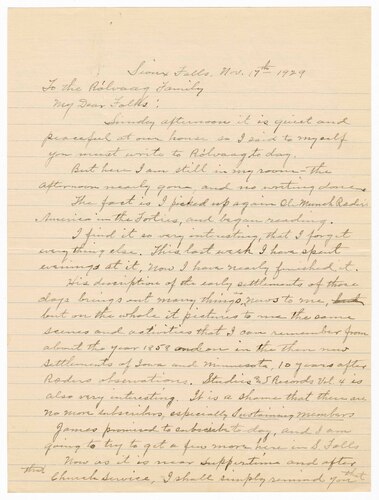 Sioux Falls. Nov. 17th 1929
To the Rölvaag Family
My Dear Folks:
Sunday afternoon it is quiet and
peaceful at our house, so I said to myself
you must write to Rölvaag to day.
But here I am still in my room - the
afternoon nearly gone, and no writing done.
The fact is I picked up again Ol. Munch Raeders
America in the Forties, and began reading.
I find it so very interesting, that I forget
everything else. This last week I have spent
evenings at it, Now I have nearly finished it.
His discription of the early settlements of those
days brings out many things, news to me,
but on the whole it pictures to me the same
scenes and activities that I can remember from
about the year 1858 and on in the then new
settlements of Iowa and Minnesota, 10 years after
Raders observations. Studies & Records Vol 4 is
also very intresting. It is a shame that there are
no more subscribers, especially Sustaining Members
James promised to subscribe to day, and I am
going to try to get a few more here in S. Falls
Now as it is near suppertime and after
that Church Service, I shall simply remind you that